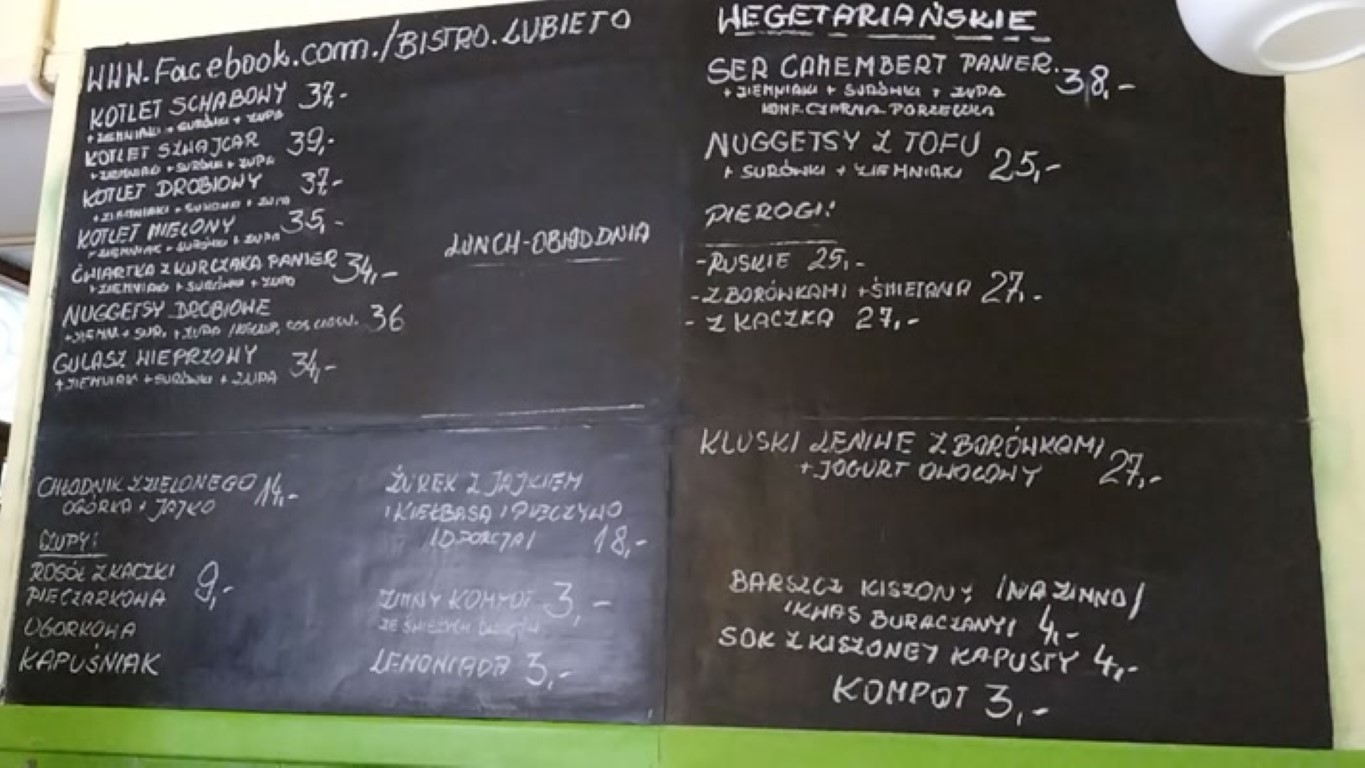 WWW.Facebook.com./BISTRO.LUBIETO
KOTLET SCHABOWY 37,-
+ ZIEMNIAKI + SURÓWKI + ZUPA
KOTLET SZWAJCAR 39,-
+ ZIEMNIAKI + SURÓWKI + ZUPA
KOTLET DROBIOWY 37-
+ ZIEMNIAKI + SURÓWKI + ZUPA
KOTLET MIELONY 35,-
+ ZIEMNIAKI + SURÓWKI + ZUPA
ĆWIARTKA Z KURCZAKA PANIER 34,-
+ ZIEMNIAKI + SURÓWKI + ZUPA
NUGGETSY DROBIOWE 36
+ ZIEMN + SUR, + ZUPA SOS
GULASZ WIEPRZOWY 34,-
+ ZIEMNIAKI + SURÓWKI + ZUPA
LUNCH-OBIAD DNIA
CHŁODNIK Z ZIELONEGO 14,-
OGÓRKA + JAJKO
ZUPY:
ROSÓŁ Z KACZKI 9,-
PIECZARKOWA
OGÓRKOWA
KAPUŚNIAK
ŻUREK Z JAJKIEM
I KIEŁBASĄ I PIECZYWO
/D.PORCJA/ 18,-
ZIMNY KOMPOT 3,-
ZE ŚWIEŻYCH
LEMONIADA 3,-
WEGETARIAŃSKIE
SER CAMEMBERT PANIER. 38,-
+ ZIEMNIAKI + SURÓWKI + ZUPA
KONF. CZARNA PORZECZKA
NUGGETSY Z TOFU 25,-
+ SURÓWKI + ZIEMNIAKI
PIEROGI:
-RUSKIE 25,-
-Z BORÓWKAMI + ŚMIETANA 27,-
- Z KACZKĄ 27,-
KLUSKI LENIWE Z BORÓWKAMI 27,-
+ JOGURT OWOCOWY
BARSZCZ KISZONY /NA ZIMNO/
/KWAS BURACZANY/ 4,-
SOK Z KISZONEJ KAPUSTY 4,-
KOMPOT 3,-